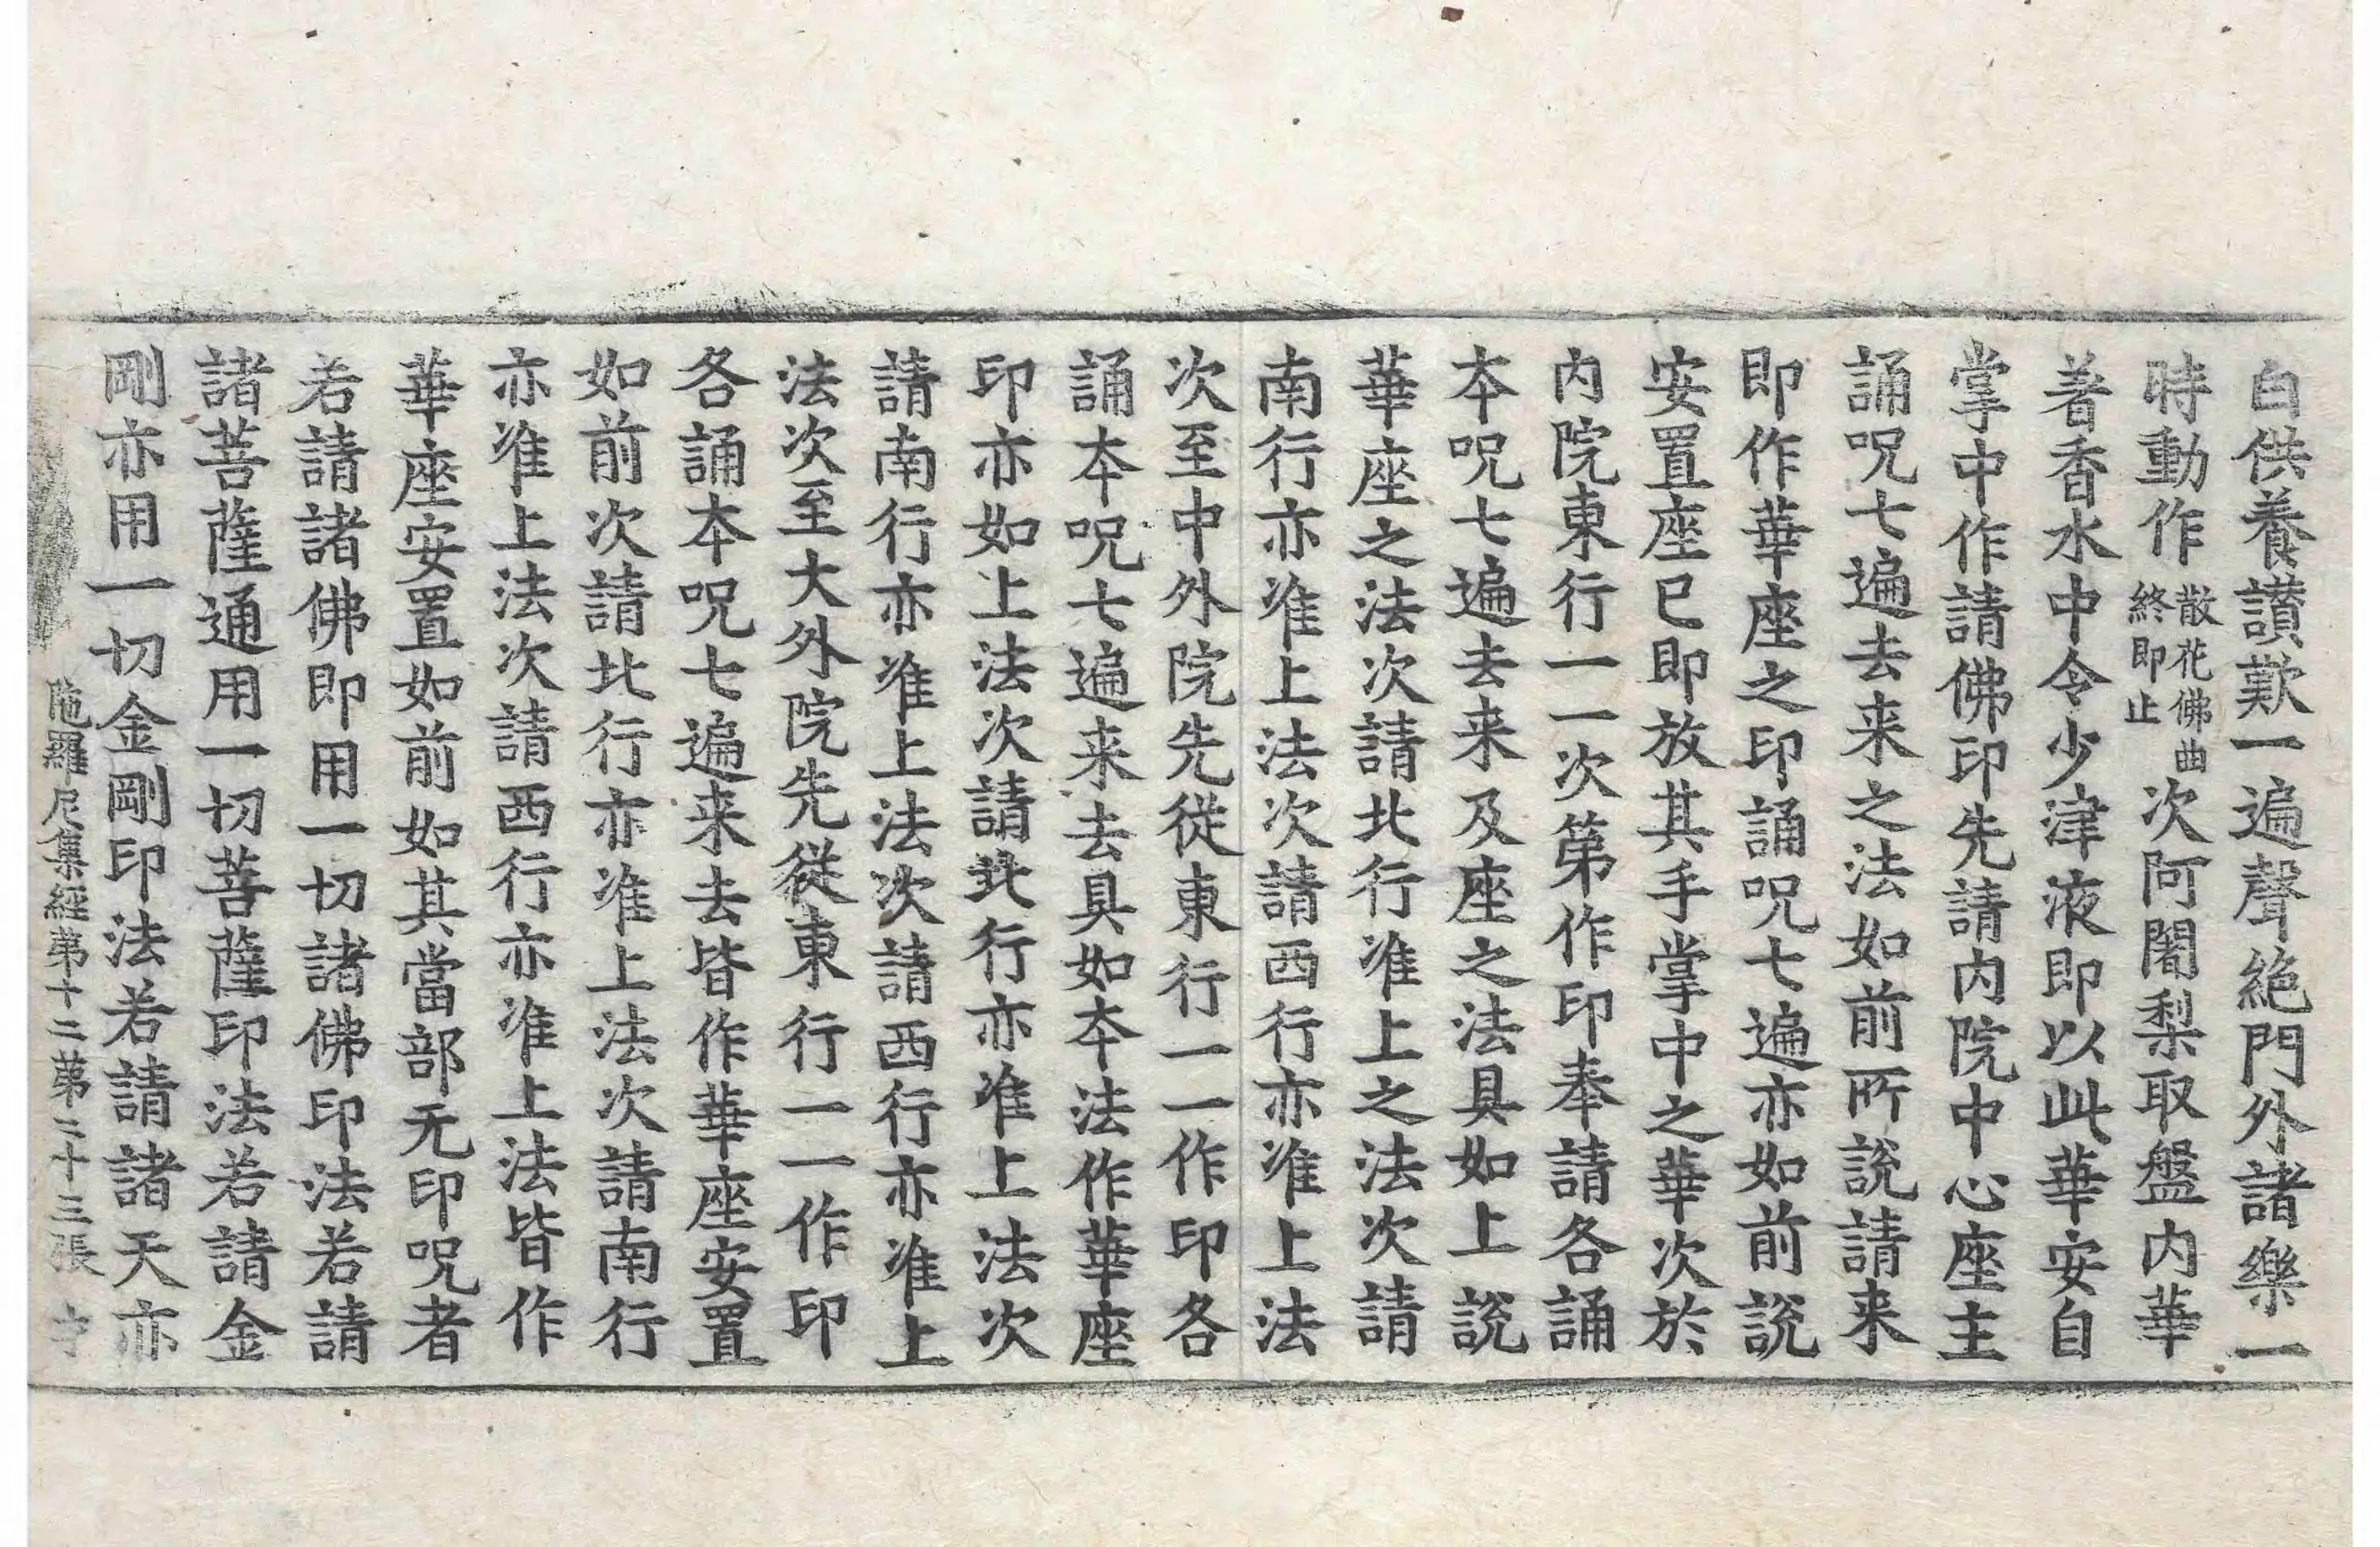 白供養讚歎一遍聲絶門外諸樂一
時動作散花佛曲終即止次阿闍梨取盤内華
著香水中令少津液即以此華安自
掌中作請佛印先請内院中心座主
誦呪七遍去来之法如前所説請来
即作華座之印誦呪七遍亦如前説
安置座已即放其手掌中之華次於
内院東行一一次第作印奉請各誦
本呪七遍去来及座之法具如上説
華座之法次請北行准上之法次請
南行亦准上法次請西行亦准上法
次至中外院先従東行一一作印各
誦本呪七遍来去具如本法作華座
印亦如上法次請北行亦准上法次
請南行亦准上法次請西行亦准上
法次至大外院先従東行一一作印
各誦本呪七遍来去皆作華座安置
如前次請北行亦准上法次請南行
亦准上法次請西行亦准上法皆作
華座安置如前如其當部无印呪者
若請諸佛即用一切諸佛印法若請
諸菩薩通用一切菩薩印法若請金
剛亦用一切金剛印法若請諸天亦
陁羅尼集経第十二第二十三張